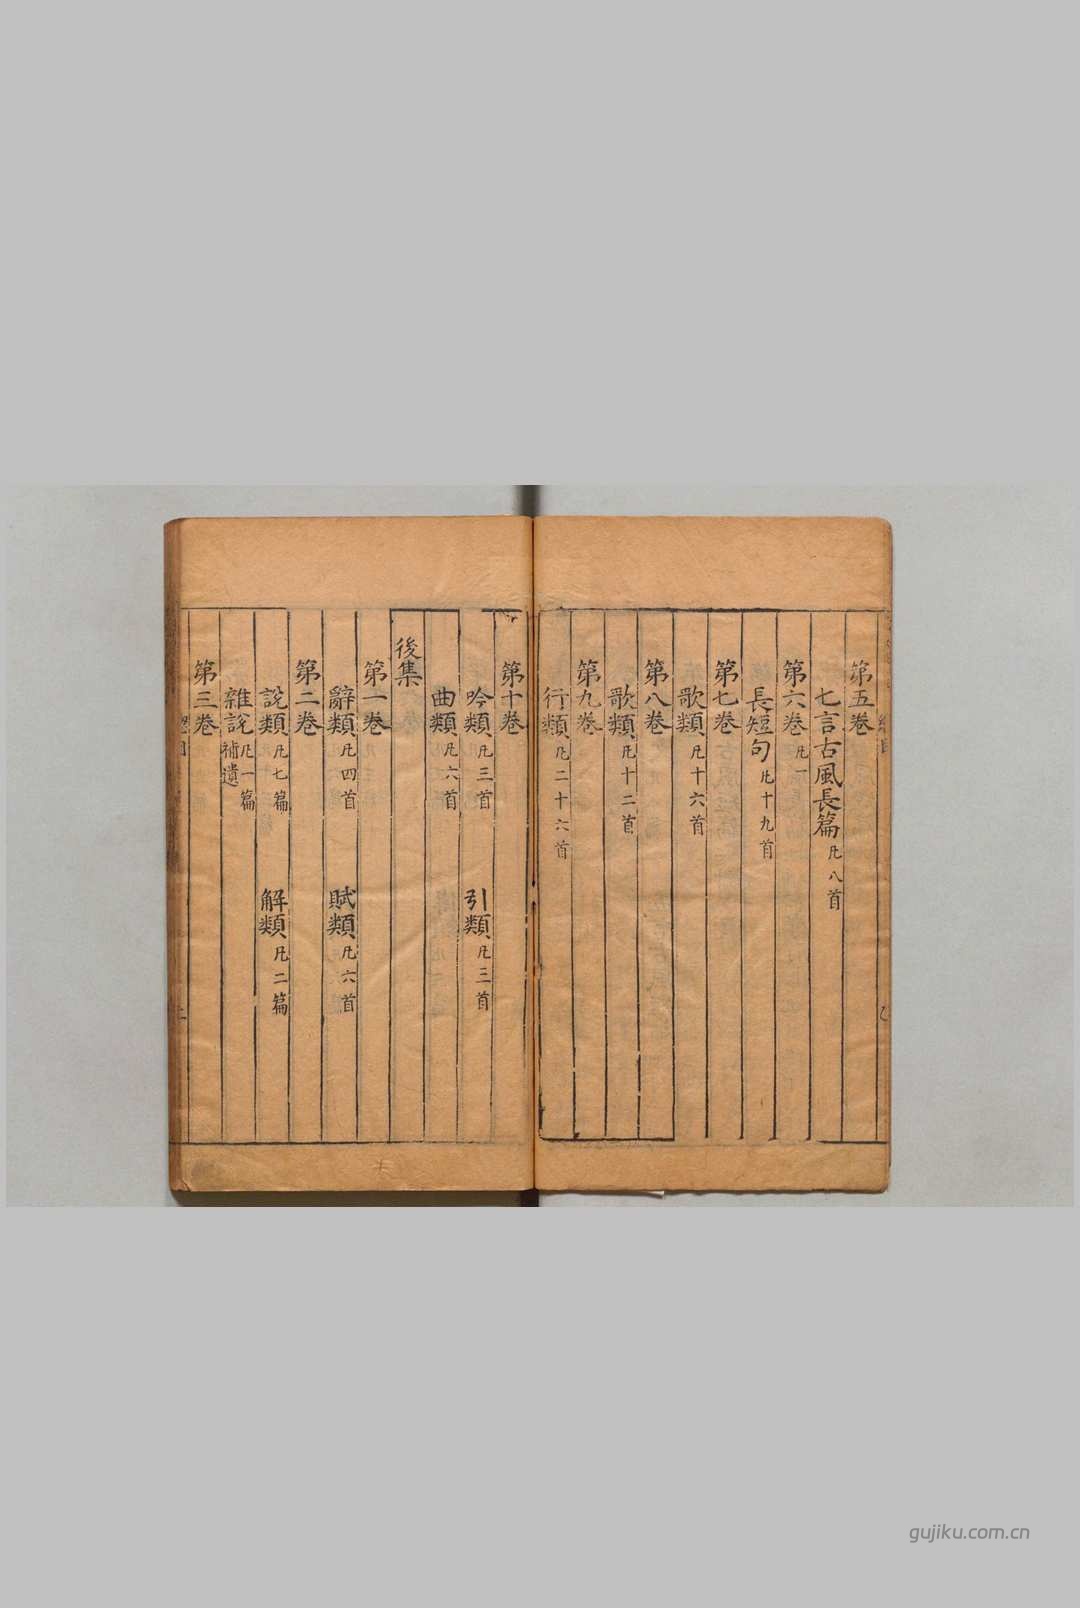 第五卷
七言古風長篇凡八首
第六卷凡一
長短句凡十九首
第七卷
歌類凡十六首
第八卷
歌類凡十二首
第九卷
行類凡二十六首
第十卷
吟類凡三首 引類凡三首
曲類凡六首
後集
第一卷
辭類凡四首 賦類凡六首
第二卷
說類凡七篇 解類凡二篇
雜說凡一篇補遺
第三卷
gujiku.com.cn